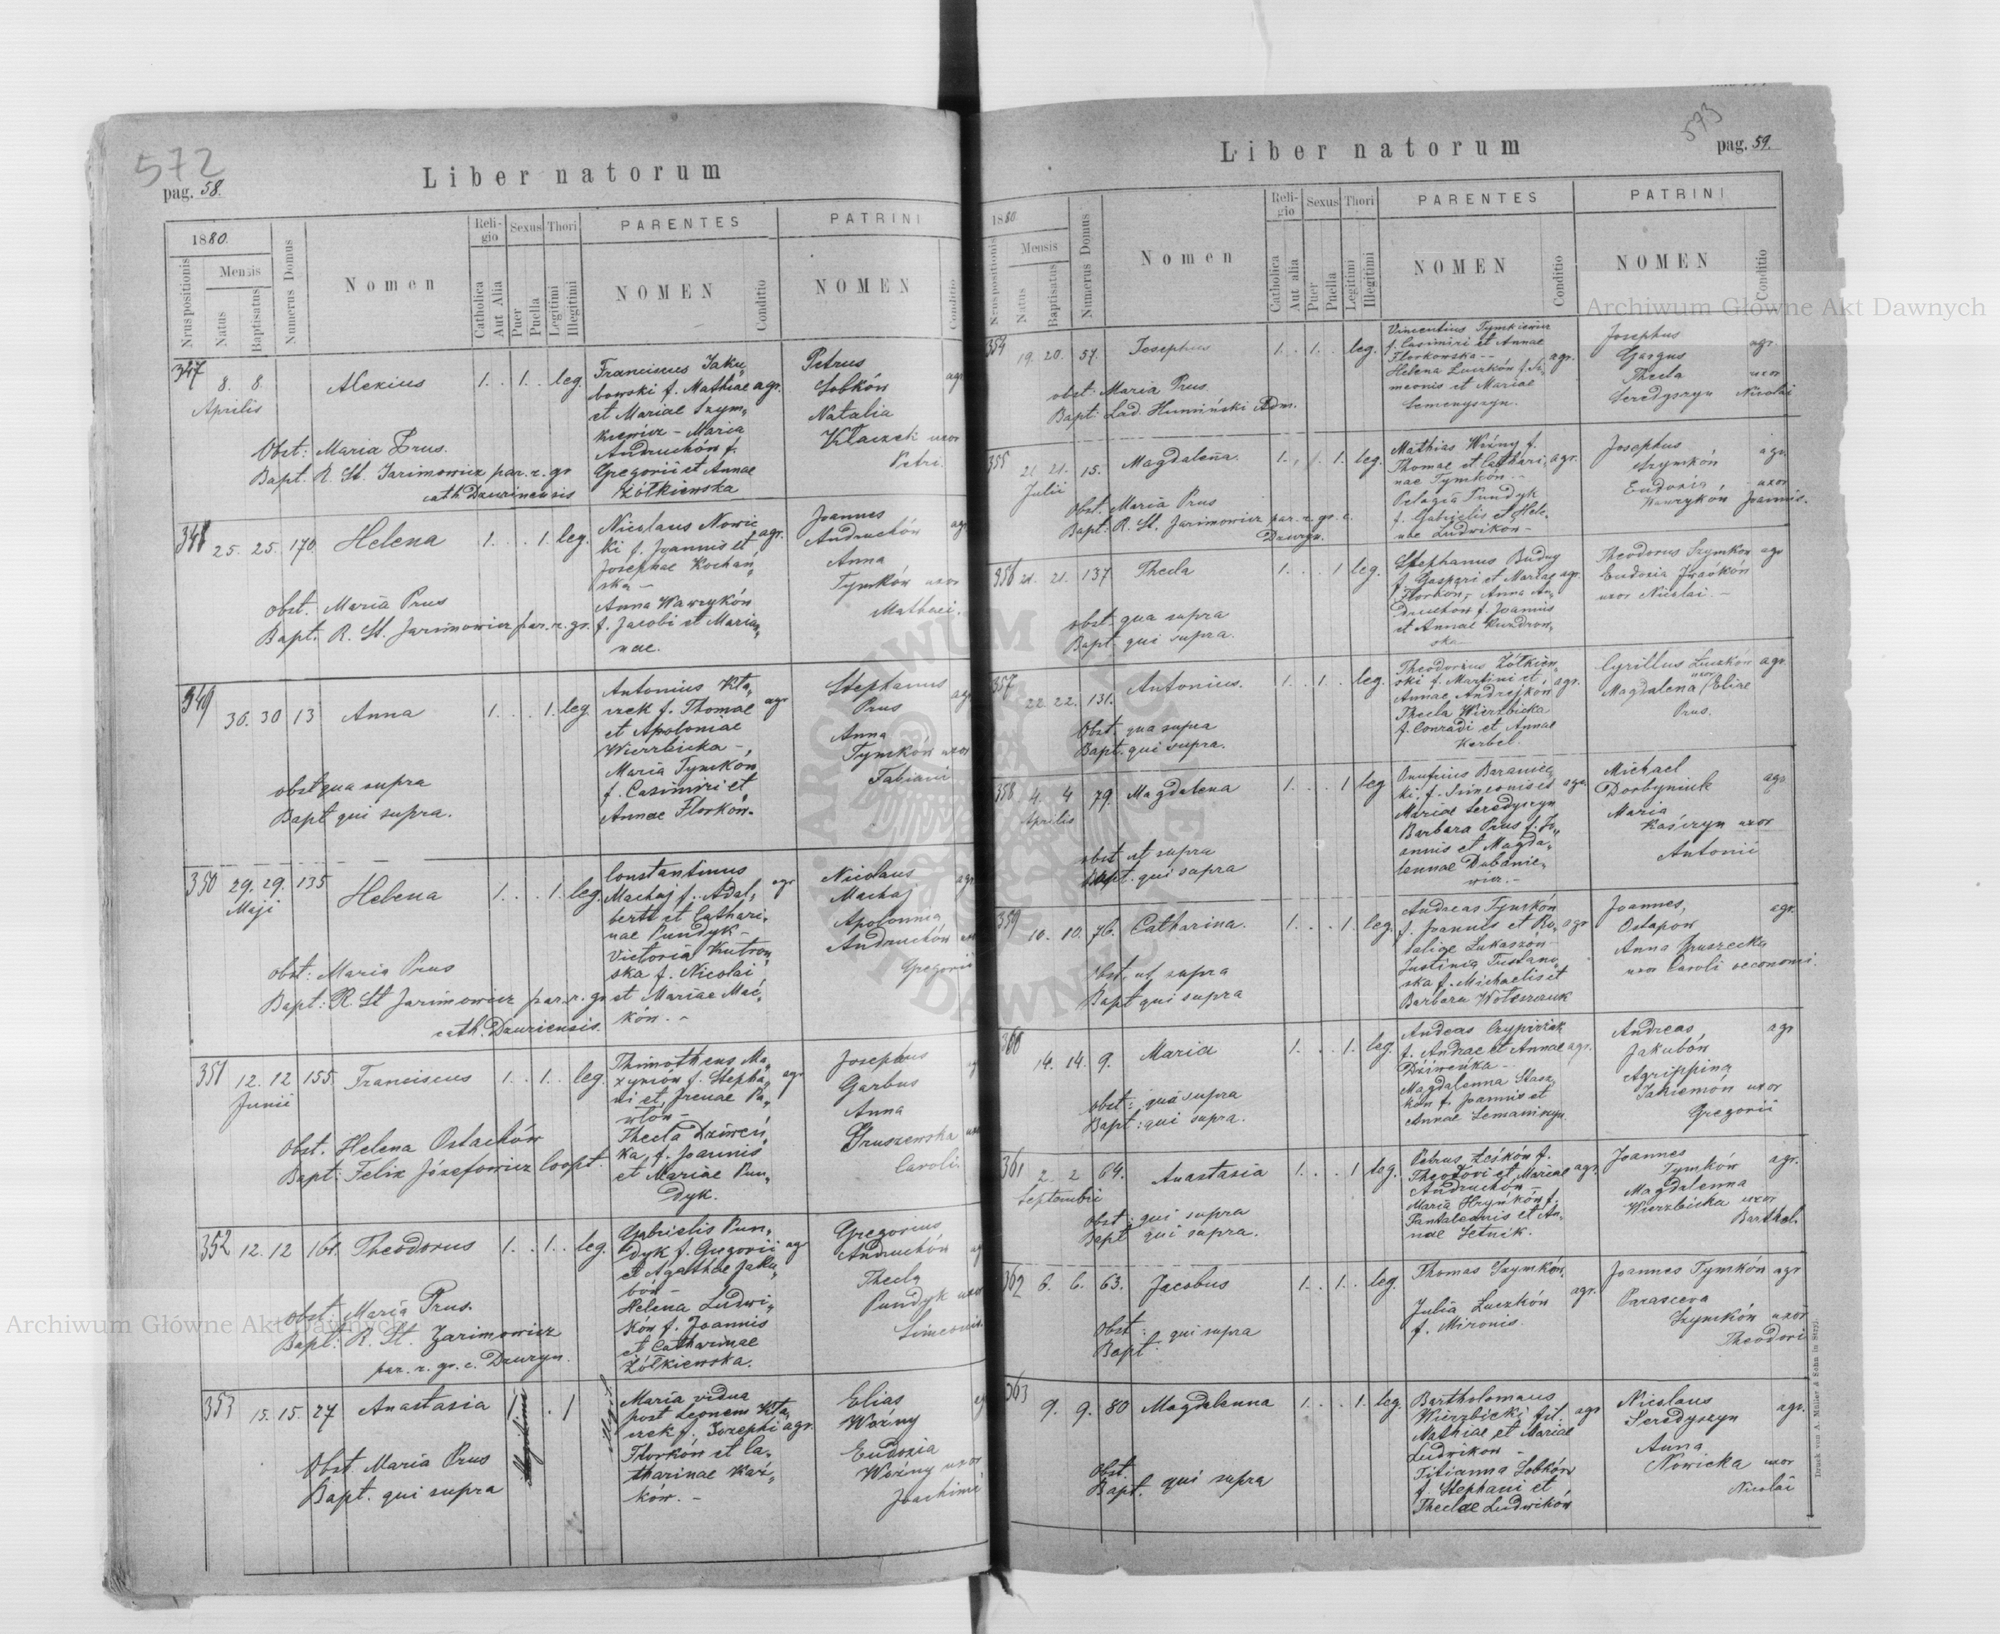 572
pag. 58.
Liber natorum
1880.
Nrus positionis
Mensis
Natus
Baptisatus
Numerus Domus
Nomen
Religio
Catholica
Aut Alia
Sexus
Puer
Puella
Thori
Legitimi
Illegtimi
PARENTES
NOMEN
Conditio
PATRINI
NOMEN
Conditio
347 8. 8. Alexius 1. . 1. . leg.
Aprilis
Franciscus Jaku„
bowski f. Mathiae agr.
et Mariae Szym„
kiewicz – Maria
Andruchów f.
Gregorii et Annae
Żółkiewska
Petrus
Sobków agr
Natalia
Kłaczek uxor
Petri.
Obst: Maria Prus.
Bapt. R. St. Jarimowicz par. r. gr
cath Dzurinensis
348 25. 25. 170. Helena 1. . . 1. leg.
Nicolaus Nowic
ki f. Joannis et agr.
Josephae Kochań„
ska –
Anna Wawryków
f. Jacobi et Marian„
nae.
Joannes
Andruchów agr
Anna
Tymków uxor
Mathaei.
obst: Maria Prus
Bapt: R. St. Jarimowicz par. r. gr.
349 30. 30 13 Anna 1. . . 1. leg.
Antonius Kła„
czek f. Thomae agr
et Apoloniae
Wierzbicka –,
Maria Tymków
f. Casimiri et
Annae Florków.
Stephanus
Prus agr
Anna
Tymków uxor
Fabiani
obst qua supra
Bapt qui supra.
350 29. 29. 135 Helena 1. . . 1. leg.
Maji
Constantinus
Machaj f. Adal„ agr
berti et Cathari„
nae Pundyk –
Victoria Kutrow„
ska f. Nicolai
et Mariae Mać„
ków. –
Nicolaus
Machaj agr
Apolonnia
Andruchów uxor
Gregorii
obst: Maria Prus
Bapt: R. St Jarimowicz par. r. gr
cath. Dzuriensis.
351 12. 12 155. Franciscus 1. . 1. . leg.
Junii
Thimotheus Ma„
zymów f. Stepha„ agr
ni et Irenae Pa„
włów –
Thecla Dziweń„
ka, f. Joannis
et Mariae Pun„
dyk.
Josephus
Garbus
Anna
Gruszewska uxor
Caroli.
Obst. Helena Ostachów
Bapt: Felix Józefowicz Coopt.
352 12. 12 161. Theodorus 1. . 1. . leg.
Gabrielis Pun„
dyk f. Gregorii agr
et Agathae Jaku„
bów –
Helena Ludwi„
ków f. Joannis
et Catharinae
Żółkiewska.
Gregorius
Andruchów agr
Thecla
Pundyk uxor
Simeonis.
obst: Maria Prus.
Bapt: R. St. Jarimowicz
par. r. gr. c. Dzuryn.
353 15. 15. 27 Anastasia 1 . . 1
Maria vidua
post Leonem Kła„
czek f. Josephi agr.
Florków et Ca„
tharinae Kać„
ków. –
Elias
Woźny
Eudoxia
Woźny uxor
Joachimi
Obst Maria Prus
Bapt. qui supra
573
pag. 59.
Liber natorum
1880.
Nrus positionis
Mensis
Natus
Baptisatus
Numerus Domus
Nomen
Religio
Catholica
Aut alia
Sexus
Puer
Puella
Thori
Legitimi
Illegtimi
PARENTES
NOMEN
Conditio
PATRINI
NOMEN
Conditio
354 19. 20. 57. Josephus 1. . 1. . leg.
Vincentius Tymkiewicz
f. Casimiri et Annae
Florkowska – agr.
Helena Łuczków f. Si„
meonis et Mariae
Semenyszyn.
Josephus
Gargus agr.
Thecla uxor
Seredyszyn Nicolai
obst: Maria Prus.
Bapt: Lad. Humiński Adm.
355 21. 21. 15. Magdalena. 1. . . 1. leg.
Julii
Mathias Woźny f.
Thomae et Cathari„ agr.
nae Tymków. –
Pelagia Pundyk
f. Gabrielis et Hele„
nae Ludwików –
Josephus
Szymków agr.
Eudoxia, uxor
Wawryków Joannis.
Obst. Maria Prus
Bapt. R. St. Jarimowicz par. r. gr. c.
Dzuryn.
356 21. 21. 137. Thecla 1. . . 1 leg.
Stephanus Budny
f. Gaspari et Mariae agr.
Florków, Anna An„
druchów f. Joannis
et Annae Kuzdrow„
ska
Theodorus Szymków agr
Eudoxia Iwaśków
uxor Nicolai. –
obst. qua supra
Bapt. qui supra.
357 22. 22. 131. Antonius. 1. . 1. . leg.
Theodorus Żółkiew„
ski f. Martini et agr.
Annae Andrejków
Thecla Wierzbicka
f. Conradi et Annae
Korbel.
Cyrillus Łuczków agr.
Magdalena uxor Eliae
Prus.
Obst. qua supra
Bapt. qui supra.
358 4. 4 79. Magdalena 1. . . 1 leg
Aprilis
Onufrius Baranic„
ki f. Simeonis et agr.
Mariae Seredyszyn
Barbara Prus f. Jo„
annis et Magda„
lennae Dubanie„
wicz. –
Michael
Dorbyniuk agr.
Maria
Kaśczyn uxor
Antonii
obst ut supra
Bapt. qui supra
359 10. 10. 76. Catharina. 1. . . 1. leg.
Andreas Tymków
f. Joannis et Ro„ agr
saliae Łukaszów –
Justinia Tustano„
ska f. Michaelis et
Barbara Wołoszczuk
Joannes,
Ostapów agr.
Anna Gruszecka
uxor Caroli oeconomi.
obst. ut supra
Bapt qui supra
360 14. 14. 9. Maria 1. . . 1. leg.
f. Andrae et Annae agr.
Dziweńka –
Magdalenna Stasz„
ków f. Joannis et
Annae Semaniszyn.
Andreas, agr
Jakubów
Agrippina
Jakiemów uxor
Gregorii
obst: qua supra
Bapt: qui supra.
361 2. 2 64. Anastasia 1. . . 1 leg.
Septembri
Petrus Leśków f.
Theodori et Mariae agr.
Andruchów –
Maria Hryńków f.
Pantaleonis et An„
nae Letnik.
Joannes
Tymków agr.
Magdalenna
Wierzbicka uxor
Barthol.
Obst: qui supra
Bapt qui supra.
362 6. 6. 63. Jacobus 1. . 1. . leg.
Thomas Szymków,
agr.
Julia Łuczków
f. Mironis.
Joannes Tymków agr
Parasceva
Szymków uxor
Theodori
Obst:
Bapt. qui supra
363 9. 9. 80 Magdalenna 1. . . 1. leg.
Bartholomaus
Wierzbicki, fil. agr
Mathiae et Mariae
Ludwików –
Titianna Sobków
f. Stephani et
Theclae Ludwików
Nicolaus
Seredyszyn agr.
Anna
Nowicka uxor
Nicolai
Obst.
Bapt. qui supra
Druck von A. Müller & Sohn in Stryj.
Archiwum Główne Akt Dawnych
Archiwum Główne Akt Dawnych
ARCHIWUM GŁÓWNE AKT DAWNYCH